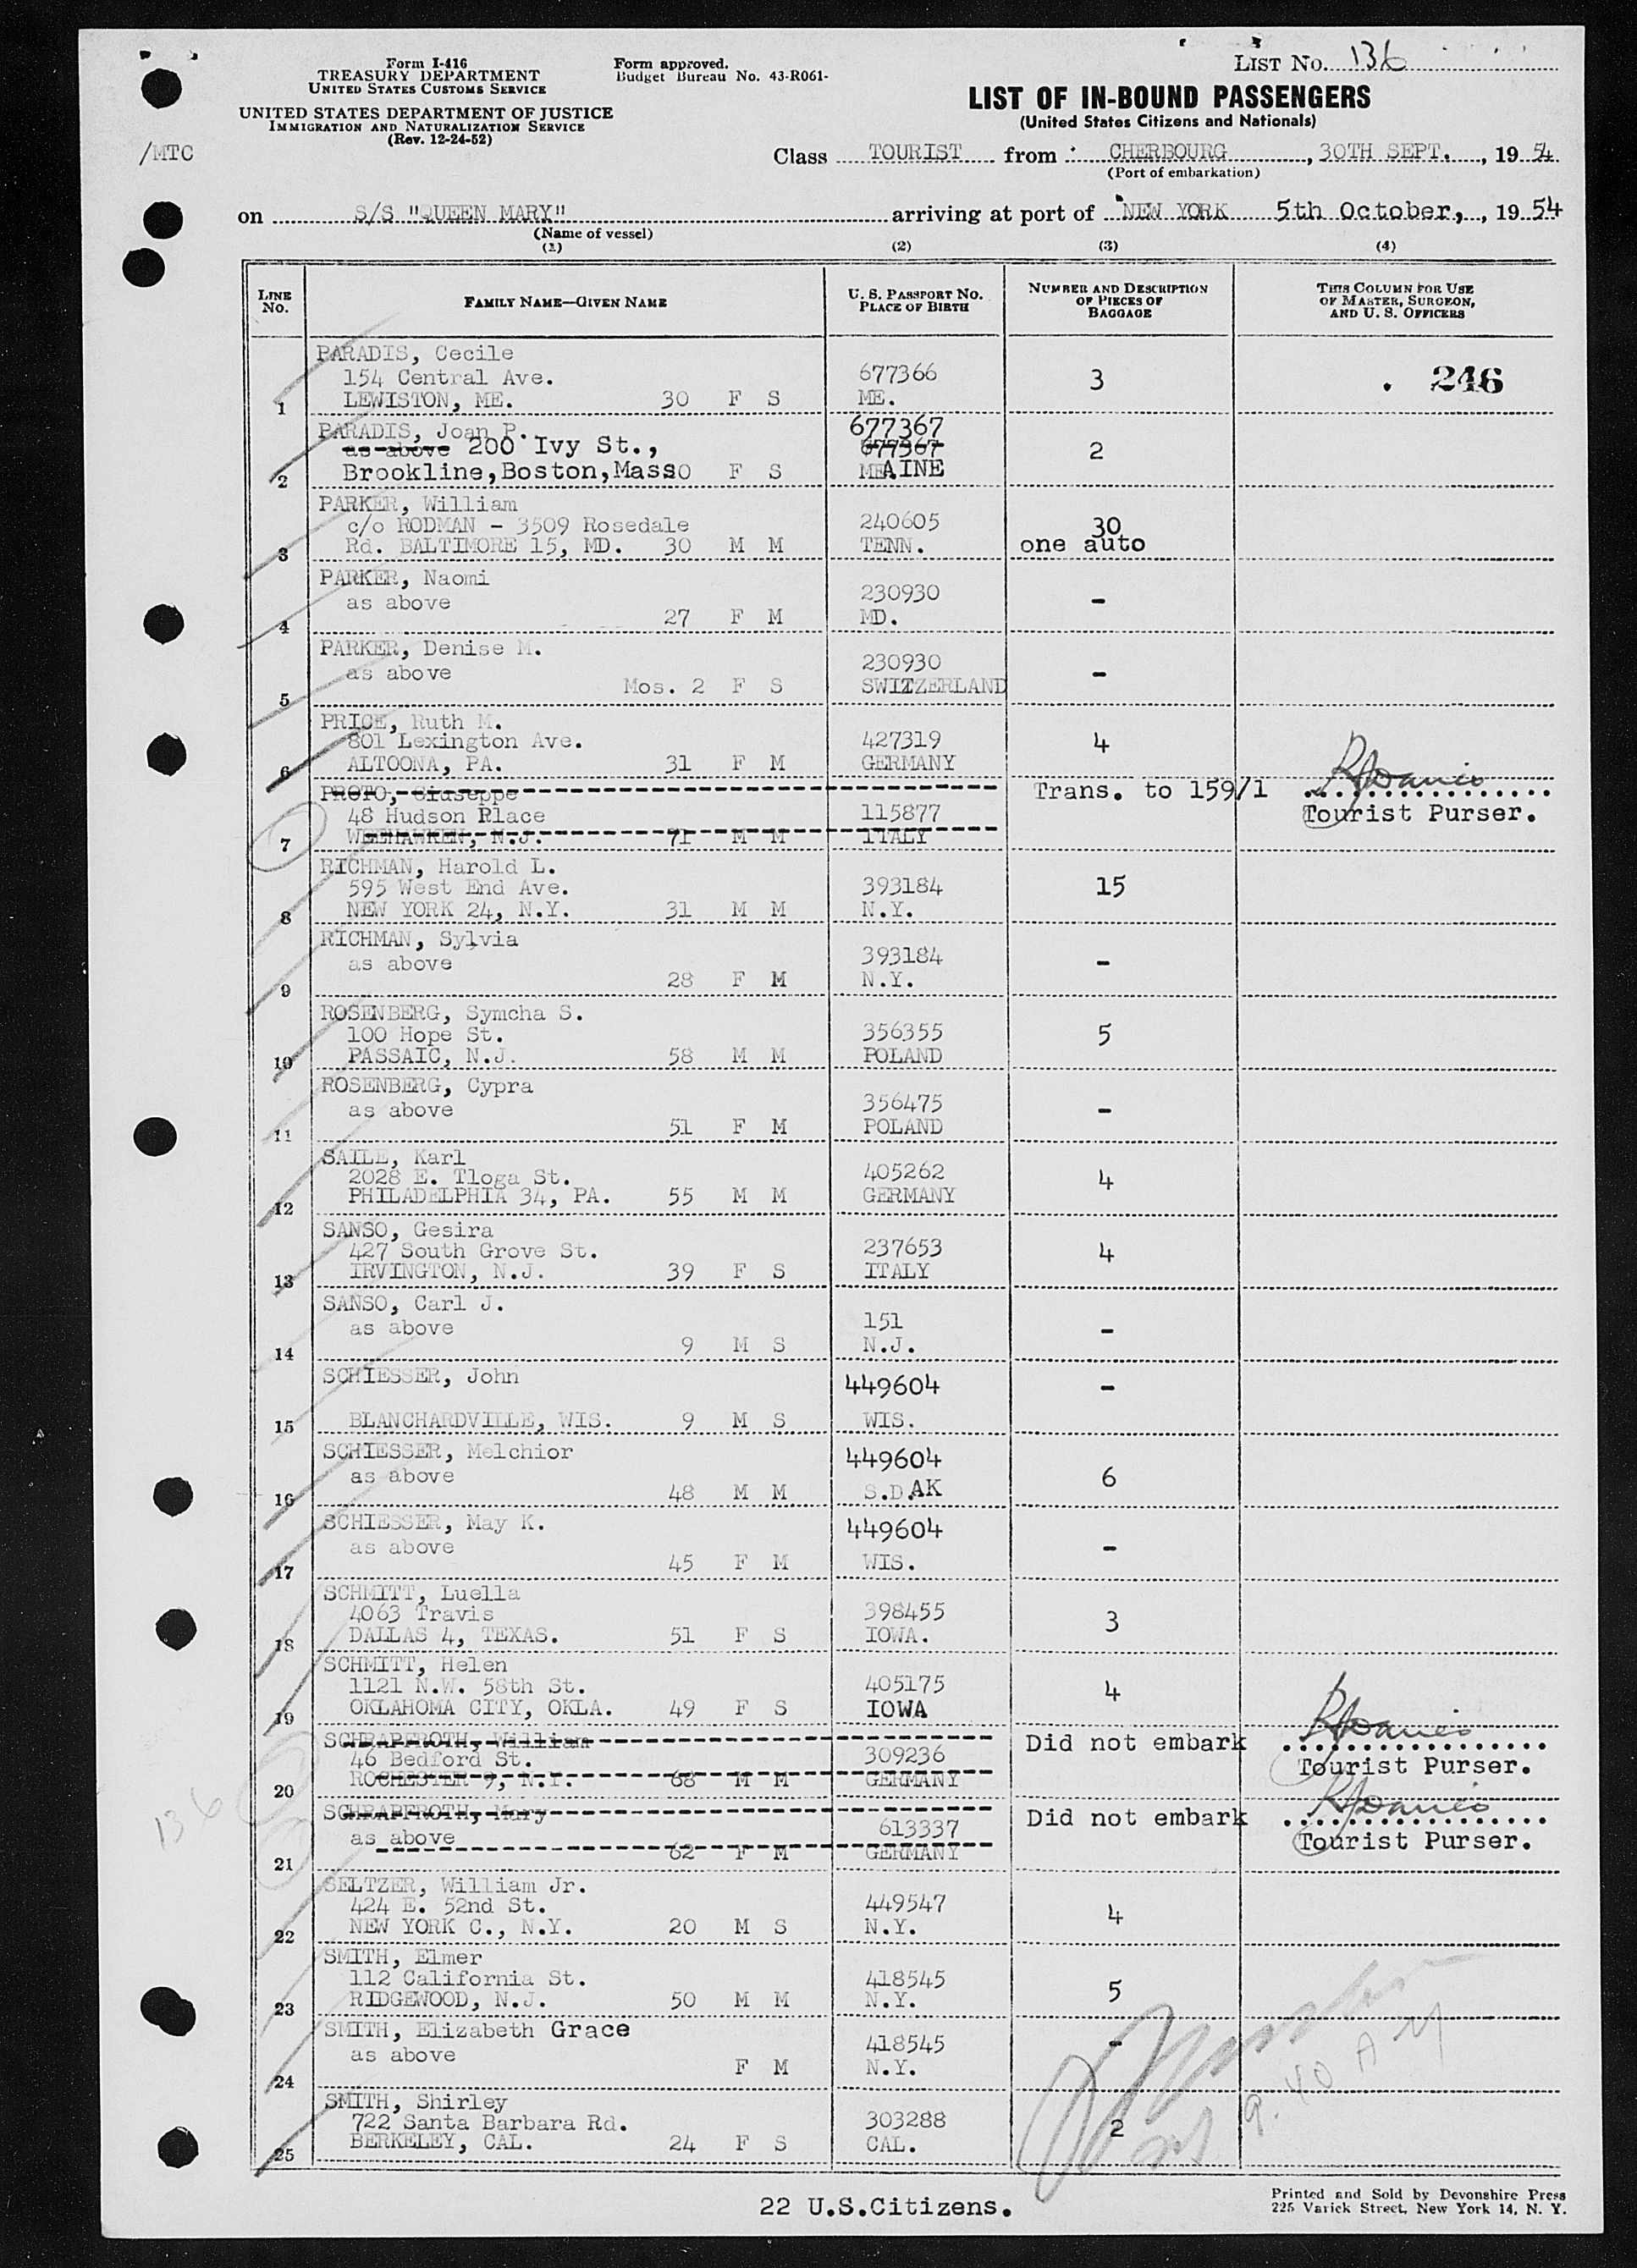 Form I-416
TREASURY DEPARTMENT
UNITED STATES CUSTOMS SERVICE
UNITED STATES DEPARTMENT OF JUSTICE
IMMIGRATION AND NATURALIZATION SERVICE
(Rev. 12-24-52)
Form approved.
Budget Bureau No. 43-R061-
LIST NO. 136
LIST OF IN-BOUND PASSENGERS
(United States Citizens and Nationals)
/MTC
Class TOURIST from CHERBOURG, 30TH SEPT., 19 54
(Port of embarkation)
on S/S "QUEEN MARY" arriving at port of NEW YORK 5th October, 19 54
(Name of vessel)
(1) (2) (3) (4)
LINE NO. FAMILY NAME—GIVEN NAME U. S. PASSPORT NO. PLACE OF BIRTH NUMBER AND DESCRIPTION OF PIECES OF BAGGAGE THIS COLUMN FOR USE OF MASTER, SURGEON, AND U. S. OFFICERS
PARADIS, Cecile
154 Central Ave. 677366 3 . 246
1 LEWISTON, ME. 30 F S ME.
PARADIS, Joan P. 677367
as above 200 Ivy St., 677967 2
2 Brookline, Boston, Mass0 F S MEAINE
PARKER, William
c/o RODMAN - 3509 Rosedale 240605 30
3 Rd. BALTIMORE 15, MD. 30 M M TENN. one auto
PARKER, Naomi
as above 230930 -
4 27 F M MD.
PARKER, Denise M.
as above 230930 -
5 Mos. 2 F S SWITZERLAND
PRICE, Ruth M.
801 Lexington Ave. 427319 4
6 ALTOONA, PA. 31 F M GERMANY
PROTO, Giuseppe Trans. to 159/1
48 Hudson Place 115877 Tourist Purser.
7 WEEHAWKEN, N.J. 71 M M ITALY
RICHMAN, Harold L.
595 West End Ave. 393184 15
8 NEW YORK 24, N.Y. 31 M M N.Y.
RICHMAN, Sylvia
as above 393184 -
9 28 F M N.Y.
ROSENBERG, Symcha S.
100 Hope St. 356355 5
10 PASSAIC, N.J. 58 M M POLAND
ROSENBERG, Cypra
as above 356475 -
11 51 F M POLAND
SAILE, Karl
2028 E. Tloga St. 405262 4
12 PHILADELPHIA 34, PA. 55 M M GERMANY
SANSO, Gesira
427 South Grove St. 237653 4
13 IRVINGTON, N.J. 39 F S ITALY
SANSO, Carl J.
as above 151 -
14 9 M S N.J.
SCHIESSER, John 449604 -
15 BLANCHARDVILLE, WIS. 9 M S WIS.
SCHIESSER, Melchior 449604
as above 6
16 48 M M S.D.AK
SCHIESSER, May K. 449604
as above -
17 45 F M WIS.
SCHMITT, Luella
4063 Travis 398455 3
18 DALLAS 4, TEXAS. 51 F S IOWA.
SCHMITT, Helen
1121 N.W. 58th St. 405175 4
19 OKLAHOMA CITY, OKLA. 49 F S IOWA
SCHRAPFROTH, William Did not embark
46 Bedford St. 309236 Tourist Purser.
20 ROCHESTER 9, N.Y. 68 M M GERMANY
SCHRAPFROTH, Mary Did not embark
as above 613337 Tourist Purser.
21 62 F M GERMANY
136
SELTZER, William Jr.
424 E. 52nd St. 449547 4
22 NEW YORK C., N.Y. 20 M S N.Y.
SMITH, Elmer
112 California St. 418545 5
23 RIDGEWOOD, N.J. 50 M M N.Y.
SMITH, Elizabeth Grace
as above 418545 -
24 F M N.Y.
9.40 AM
SMITH, Shirley
722 Santa Barbara Rd. 303288 2
25 BERKELEY, CAL. 24 F S CAL.
22 U.S.Citizens.
Printed and Sold by Devonshire Press
225 Varick Street, New York 14, N. Y.